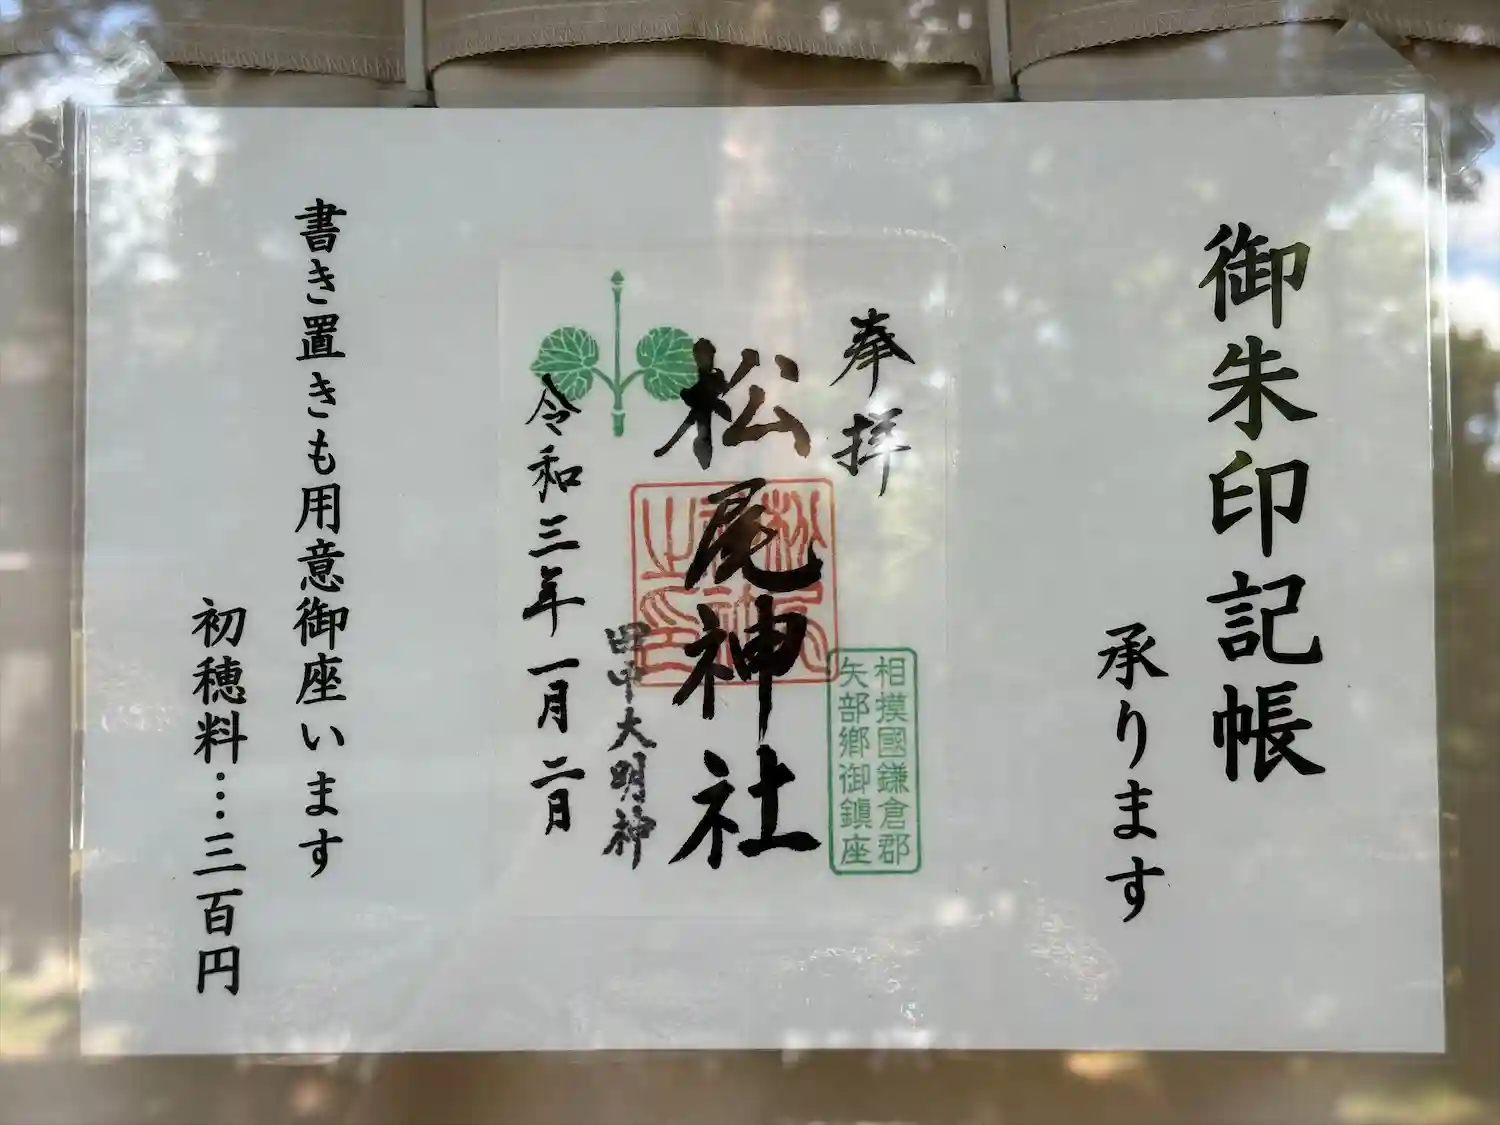 御朱印記帳
承ります
奉拝
相摸國鎌倉郡
矢部郷御鎮座
松尾神社
松尾神社之印
田中大明神
令和三年一月二日
書き置きも用意御座います
初穂料…三百円